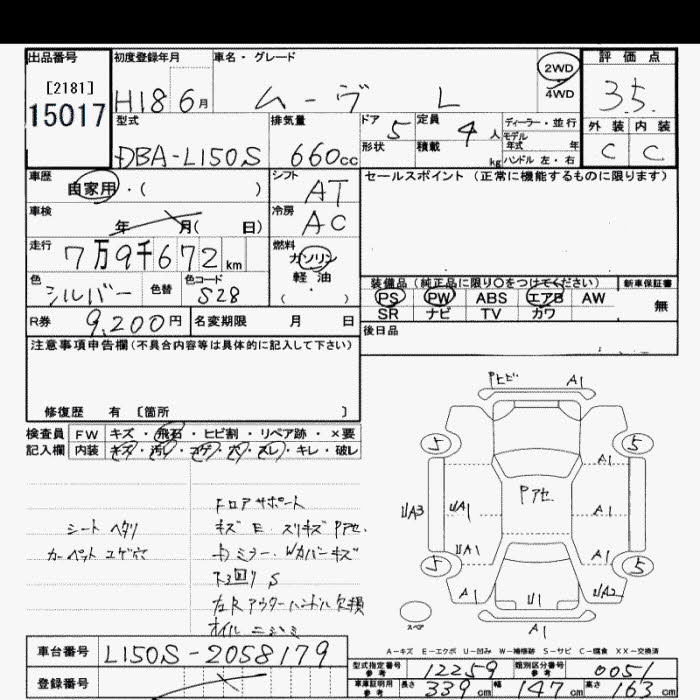 出品番号 初度登録年月 車名・グレード 2WD 4WD 評価点
[2181]
15017 H18 6月 ムーヴ L 3.5
型式 排気量 ドア 5 定員 4人 ディーラー・並行 外装 内装
DBA-L150S 660cc 形状 積載 kg モデル年式 年 ハンドル 左・右 C C
車歴 自家用・( ) シフト AT セールスポイント(正常に機能するものに限ります)
車検 年 月( 日) 冷房 AC
走行 7万9千672km 燃料 ガソリン 軽油 ( ・ )
色 シルバー 色替 色コード S28 装備品(純正品に限り〇をつけてください) 新車保証書
PS PW ABS エアB AW 無
R券 9,200円 名変期限 月 日 SR ナビ TV カワ
注意事項申告欄(不具合内容等は具体的に記入して下さい) 後日品
修復歴 有 〔箇所 〕
検査員 FW キズ・飛石・ヒビ割・リペア跡・×要
記入欄 内装 キズ・汚レ・コゲ・穴・スレ・キレ・破レ
PヒビA1
5 5
A1
Pアセ
UA3 UA1 A1
UA1 A1
5 5
A1 U1 UA2
A1
スペア
FロアサポートE
シート ヘタリ キズ E スリキズ Pアセ
カーペット コゲ穴
下回り S
左R アウターハンドル欠損
オイルニジミ
A-キズ E-エクボ U-凹み W-補修跡 S-サビ C-腐食 XX-交換済
車台番号 L150S-2058179
型式指定番号 参考 12259 類別区分番号 参考 0051
登録番号 車庫証明用 参考 長さ 339cm 幅 147cm 高さ 163cm